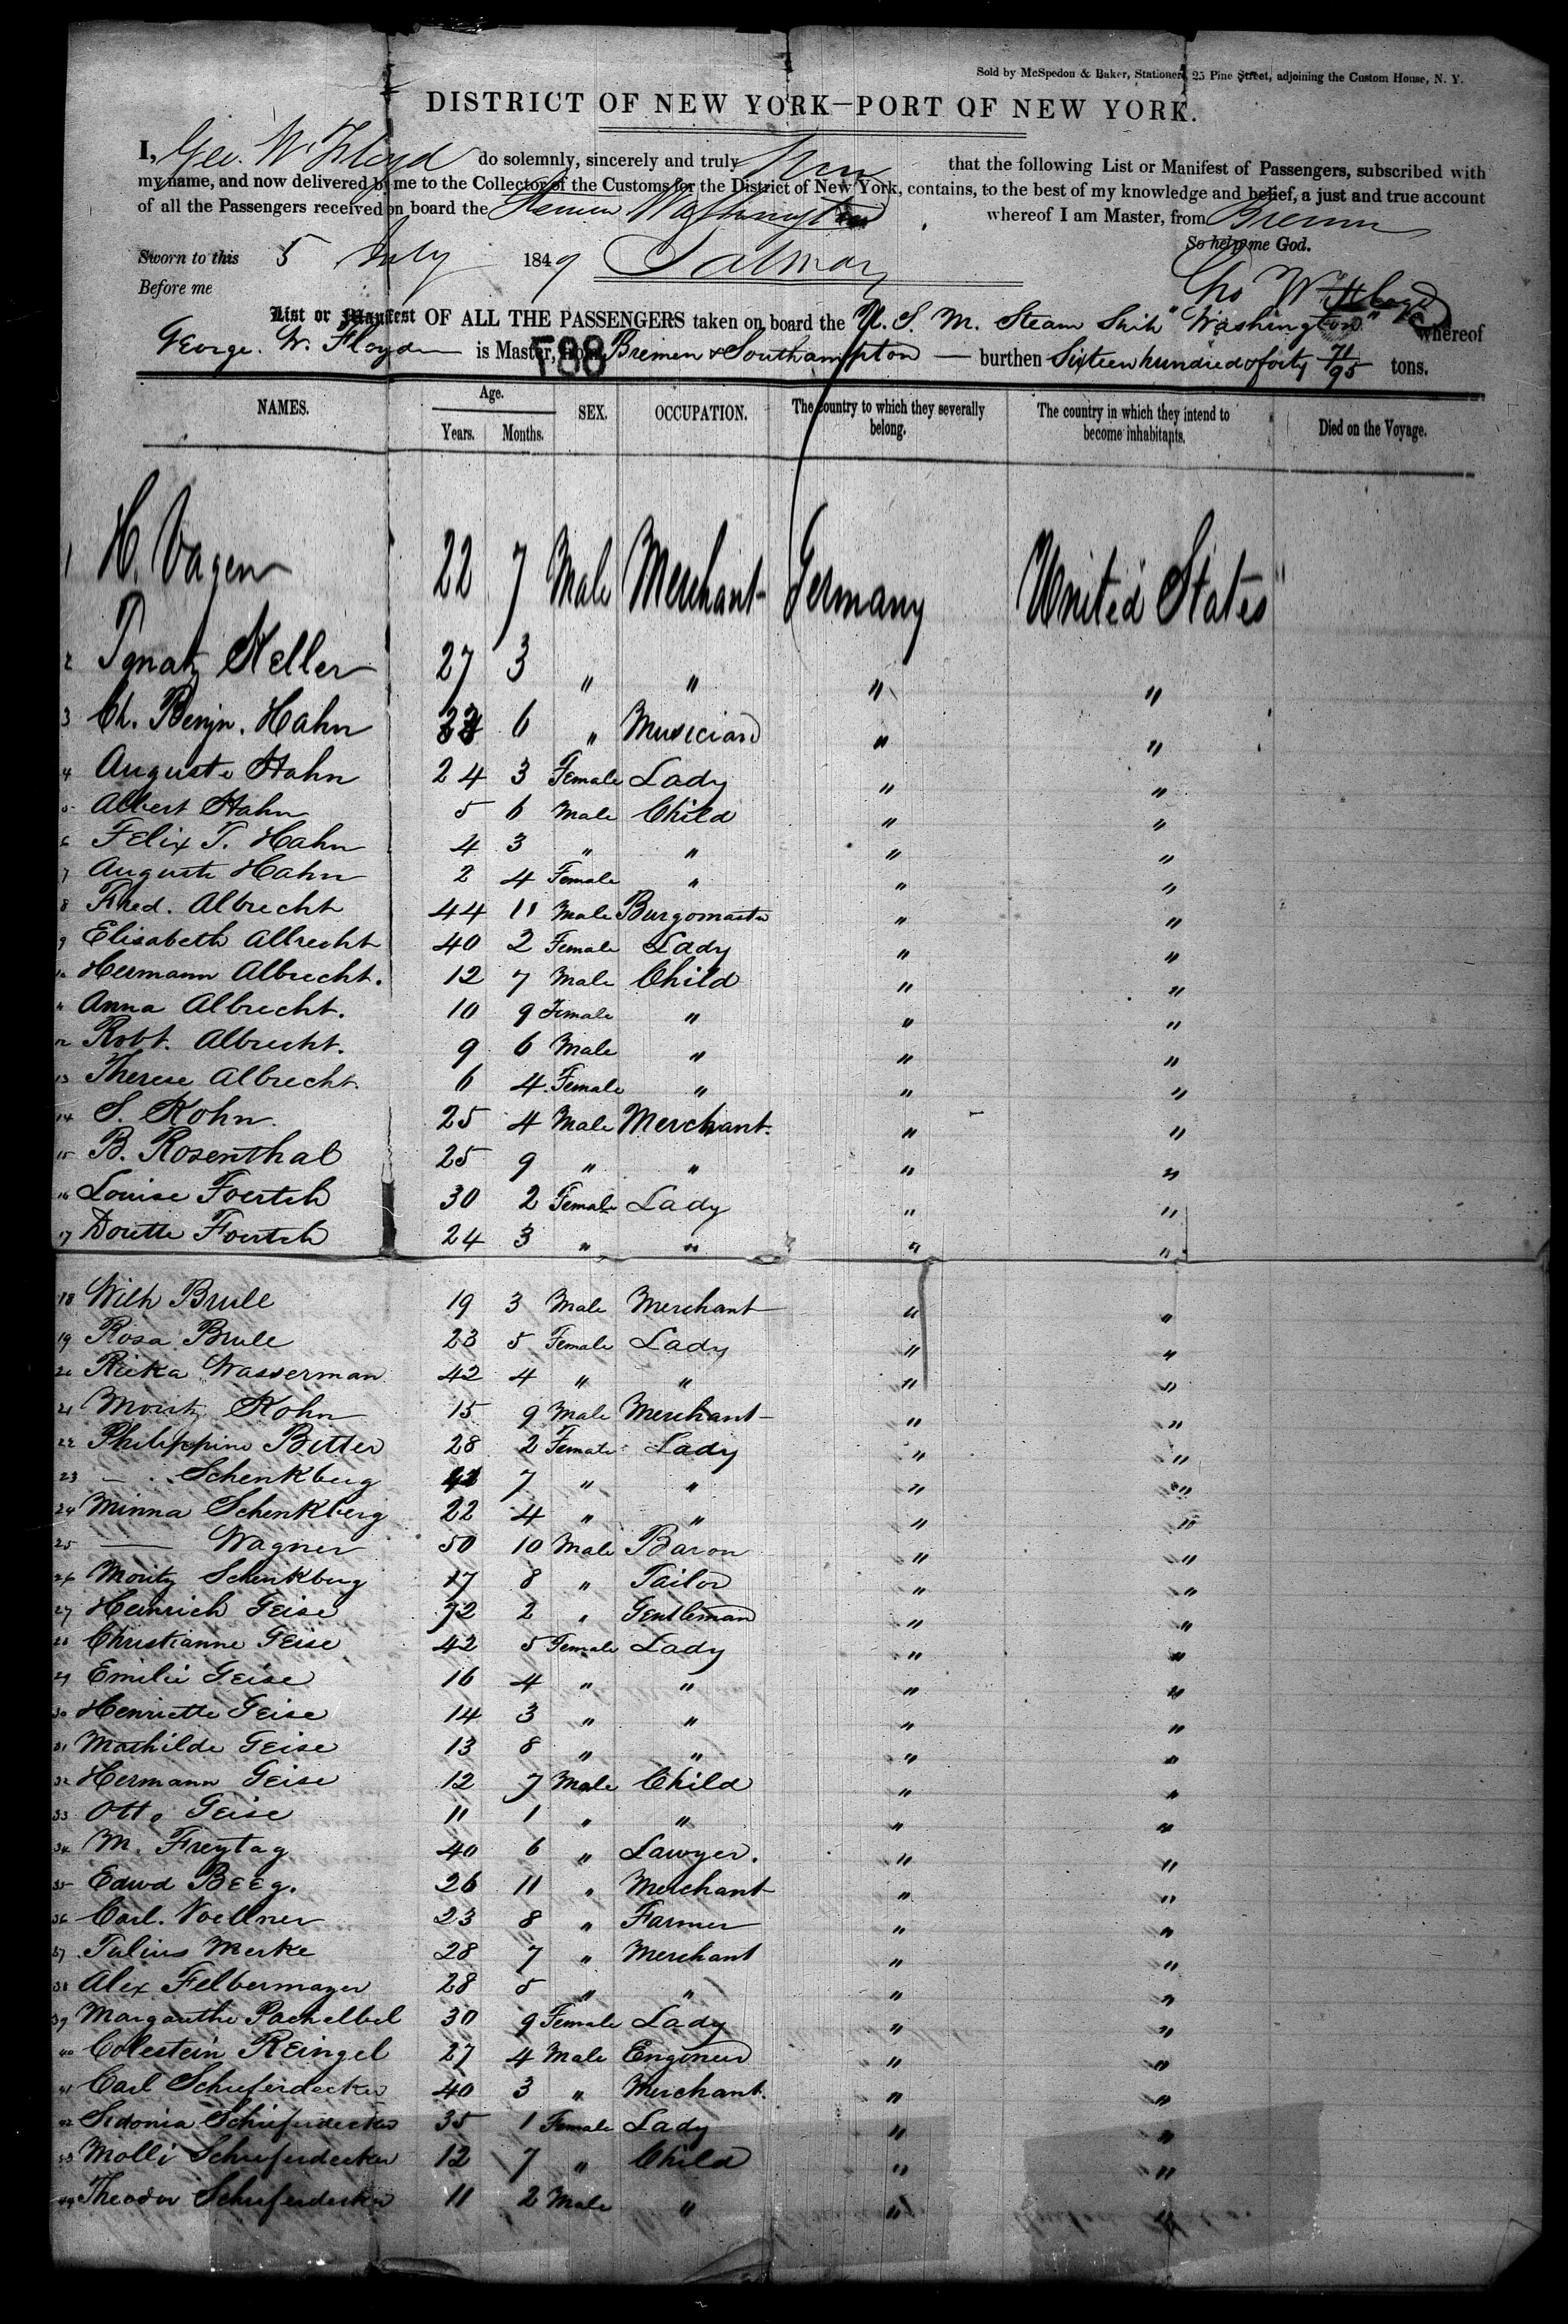 Sold by McSpedon & Baker, Stationers, 25 Pine Street, adjoining the Custom House, N. Y.
DISTRICT OF NEW YORK—PORT OF NEW YORK.
I, Geo. W. Floyd do solemnly, sincerely and truly that the following List or Manifest of Passengers, subscribed with
my name, and now delivered by me to the Collector of the Customs for the District of New York, contains, to the best of my knowledge and belief, a just and true account
of all the Passengers received on board the Steamer Washington whereof I am Master, from Bremen
So help me God.
Sworn to this 5 July 1849
Before me
Geo W Floyd
List or Manifest OF ALL THE PASSENGERS taken on board the U. S. M. Steam Ship "Washington" whereof
George. W. Floyd is Master, from Bremen & Southampton — burthen Sixteen hundred & forty 71/95 tons.
588
NAMES. Age. Years. Months. SEX. OCCUPATION. The country to which they severally belong. The country in which they intend to become inhabitants. Died on the Voyage.
1 H. Vagen 22 7 Male Merchant Germany United States
2 Ignatz Keller 27 3 " " " "
3 Ch. Benjn. Hahn 6 " Musician " "
4 Auguste Hahn 24 3 Female Lady " "
5 Albert Hahn 5 6 Male Child " "
6 Felix T. Hahn 4 3 " " " "
7 Auguste Hahn 2 4 Female " " "
8 Fred. Albrecht 44 11 Male Burgomaster " "
9 Elisabeth Albrecht 40 2 Female Lady " "
10 Hermann Albrecht. 12 7 Male Child " "
11 Anna Albrecht. 10 9 Female " " "
12 Robt. Albrecht. 9 6 Male " " "
13 Therese Albrecht. 6 4 Female " " "
14 S. Kohn. 25 4 Male Merchant. " "
15 B. Rosenthal 25 9 " " " "
16 Louise Foertsh 30 2 Female Lady " "
17 Dorette Foertsh 24 3 " " " "
18 Wilh Brull 19 3 Male Merchant " "
19 Rosa Brull 23 5 Female Lady " "
20 Ricka Wasserman 42 4 " " " "
21 Moritz Kohn 15 9 Male Merchant " "
22 Philippine Bitter 28 2 Female Lady " "
23 — Schenkberg 7 " " " "
24 Minna Schenkberg 22 4 " " " "
25 — Wagner 50 10 Male Baron " "
26 Moritz Schenkberg 17 8 " Tailor " "
27 Heinrich Geise 72 2 " Gentleman " "
28 Christianne Geise 42 5 Female Lady " "
29 Emilie Geise 16 4 " " " "
30 Henriette Geise 14 3 " " " "
31 Mathilde Geise 13 8 " " " "
32 Hermann Geise 12 7 Male Child " "
33 Otto Geise 11 1 " " " "
34 M. Freytag 40 6 " Lawyer. " "
35 Edwd Beeg. 26 11 " Merchant " "
36 Carl. Voellner 23 8 " Farmer " "
37 Julius Merke 28 7 " Merchant " "
38 Alex Felbermayer 28 5 " " " "
39 Margarethe Pachelbel 30 9 Female Lady " "
40 Colestein Reingel 27 4 Male Engineer " "
41 Carl Schieferdecker 40 3 " Merchant. " "
42 Sidonia Schieferdecker 35 1 Female Lady " "
43 Molli Schieferdecker 12 7 " Child " "
44 Theodor Schieferdecker 11 2 Male " " "